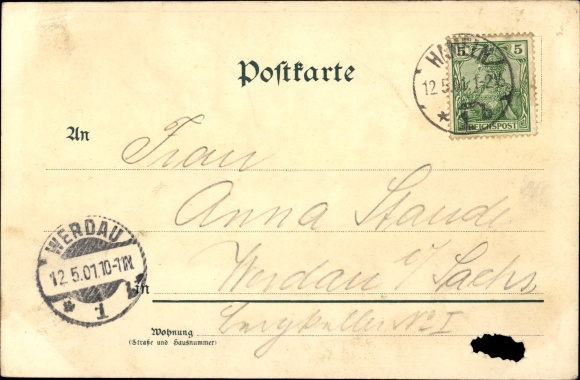 Postkarte
5 5
12.5.01. 1-2
REICHSPOST
An
Frau
Anna Staude
WERDAU
12.5.01.10-11N.
1
Werdau i/ Sachs
in
Wohnung
(Straße und Hausnummer)
No I